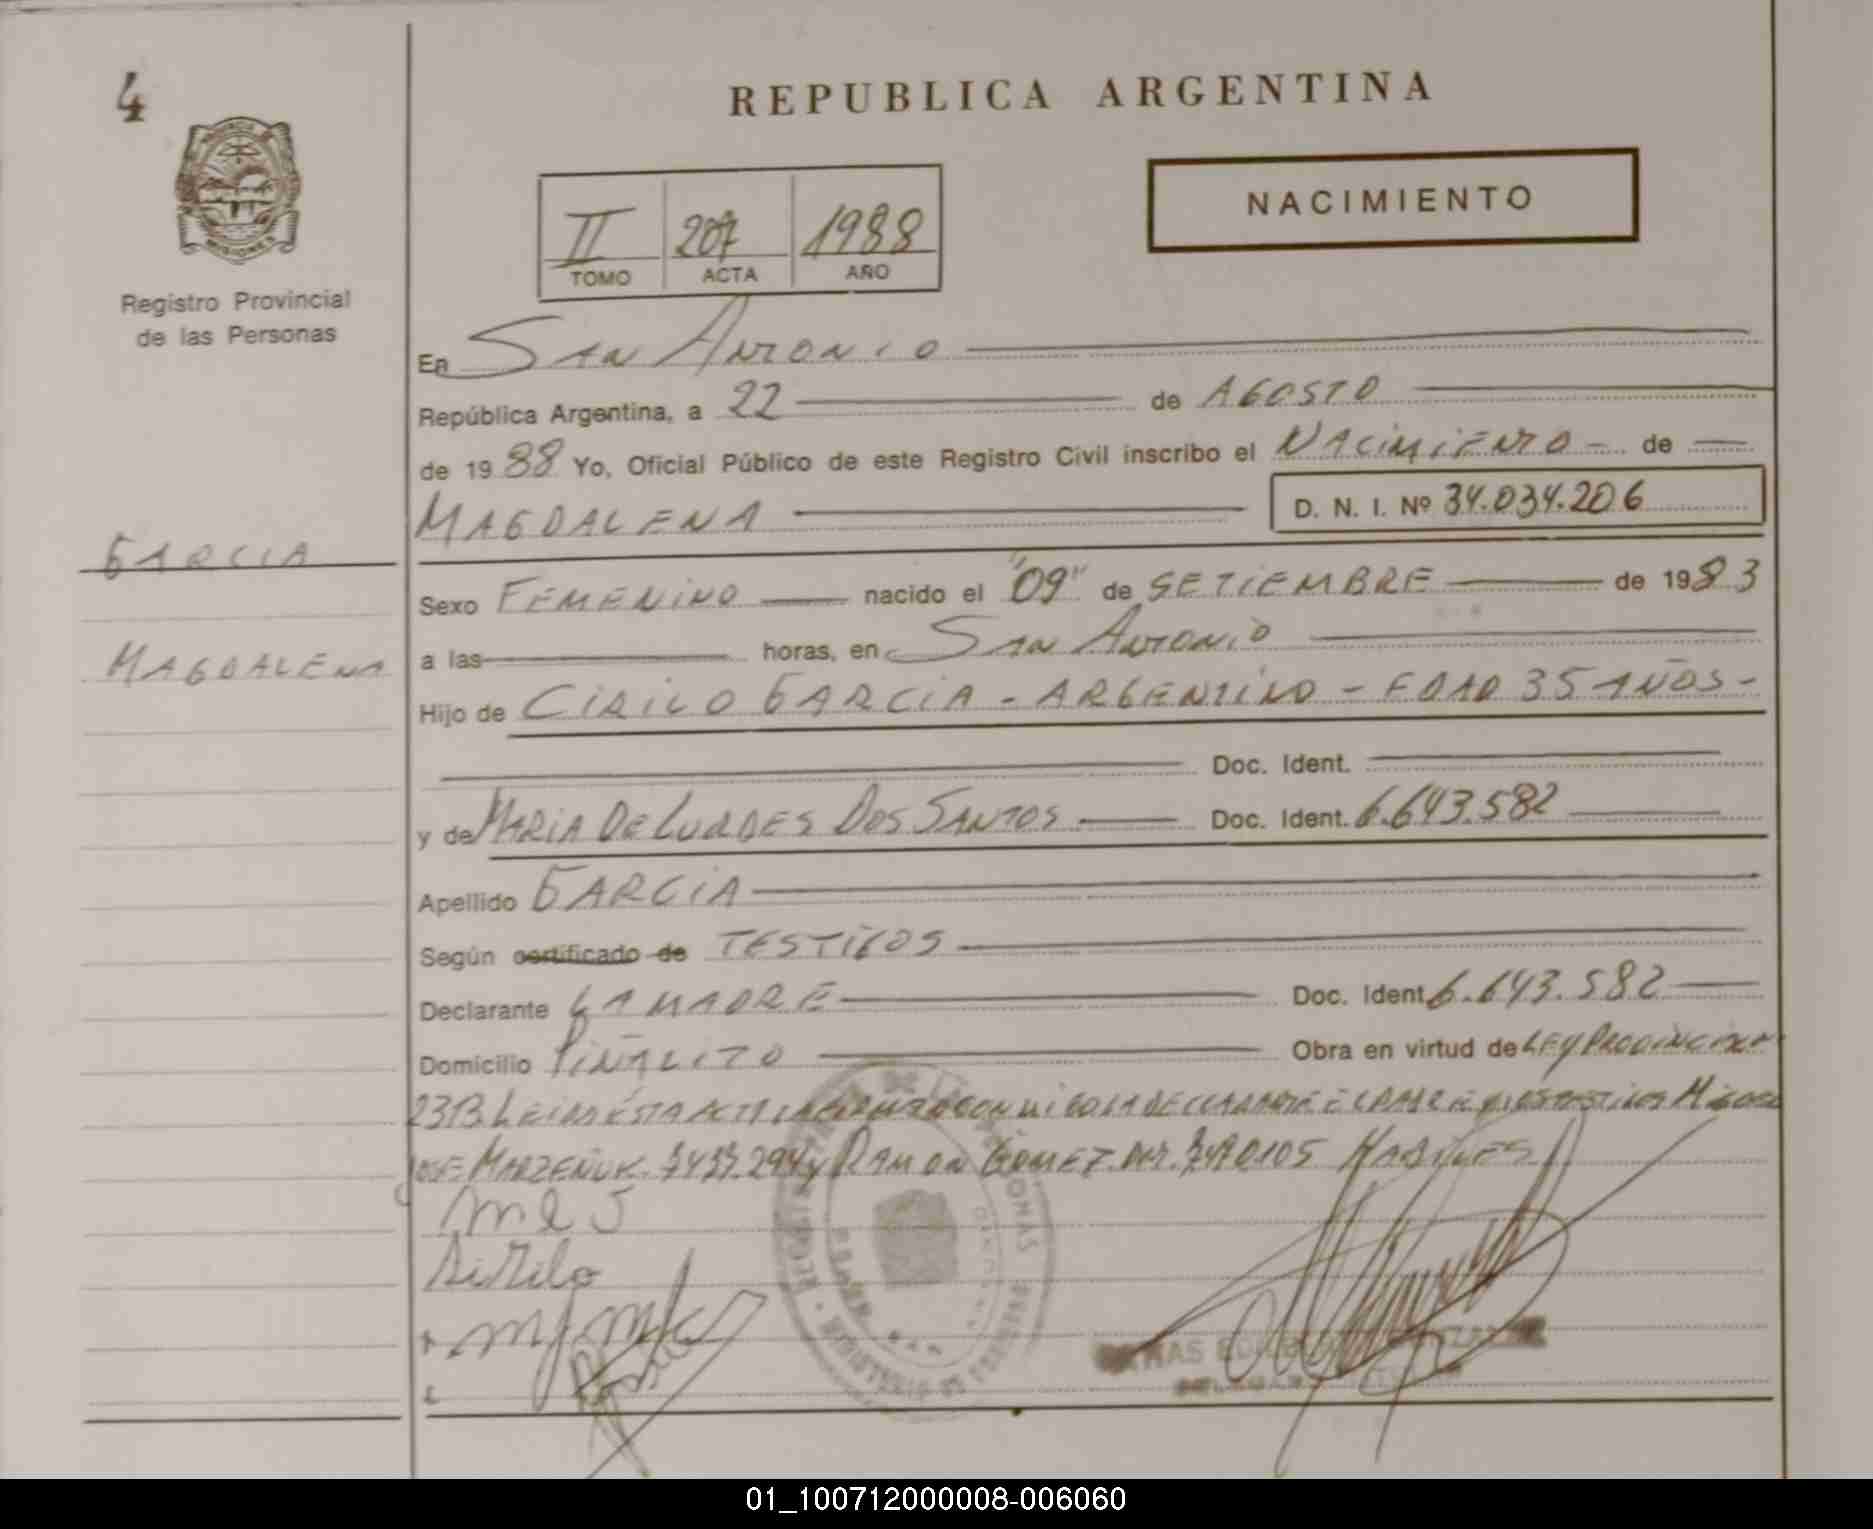 4
PROVINCIA DE
MISIONES
Registro Provincial
de las Personas
REPUBLICA ARGENTINA
NACIMIENTO
II 207 1988
TOMO ACTA AÑO
En SAN ANTONIO
República Argentina, a 22 de AGOSTO
de 1988 Yo, Oficial Público de este Registro Civil inscribo el NACIMIENTO - de
MAGDALENA D. N. I. Nº 34.034.206
GARCIA
Sexo FEMENINO nacido el "09" de SETIEMBRE de 1983
MAGDALENA
a las horas, en SAN ANTONIO
Hijo de CIRILO GARCIA - ARGENTINO - EDAD 35 AÑOS -
Doc. Ident.
y de MARIA DE LURDES DOS SANTOS Doc. Ident. 6.643.582
Apellido GARCIA
Según certificado de TESTIGOS
Declarante LA MADRE Doc. Ident. 6.643.582
Domicilio PIÑALITO Obra en virtud de LEY PROVINCIAL
LEIDA ESTA ACTA LA DECLARANTE
JOSE MARZEÑUK y RAMON GOMEZ HABILES
mls
Sirilo
01_100712000008-006060